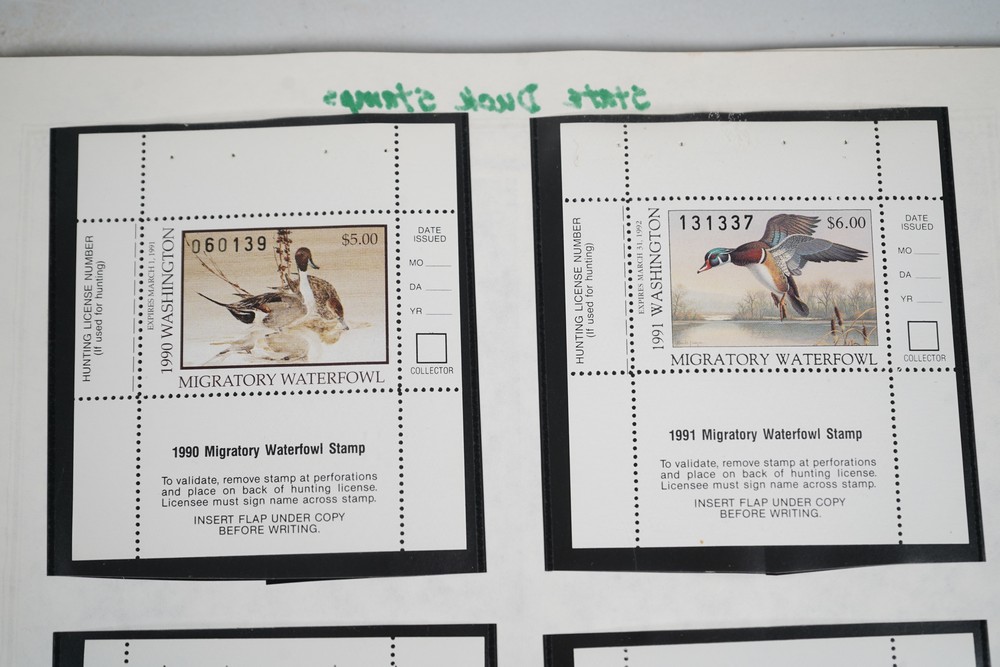 State Duck Stamps
HUNTING LICENSE NUMBER
(If used for hunting)
EXPIRES MARCH 1, 1991
1990 WASHINGTON
060139
$5.00
MIGRATORY WATERFOWL
DATE
ISSUED
MO
DA
YR
COLLECTOR
1990 Migratory Waterfowl Stamp
To validate, remove stamp at perforations
and place on back of hunting license.
Licensee must sign name across stamp.
INSERT FLAP UNDER COPY
BEFORE WRITING.
HUNTING LICENSE NUMBER
(If used for hunting)
EXPIRES MARCH 31, 1992
1991 WASHINGTON
131337
$6.00
MIGRATORY WATERFOWL
DATE
ISSUED
MO
DA
YR
COLLECTOR
1991 Migratory Waterfowl Stamp
To validate, remove stamp at perforations
and place on back of hunting license.
Licensee must sign name across stamp.
INSERT FLAP UNDER COPY
BEFORE WRITING.